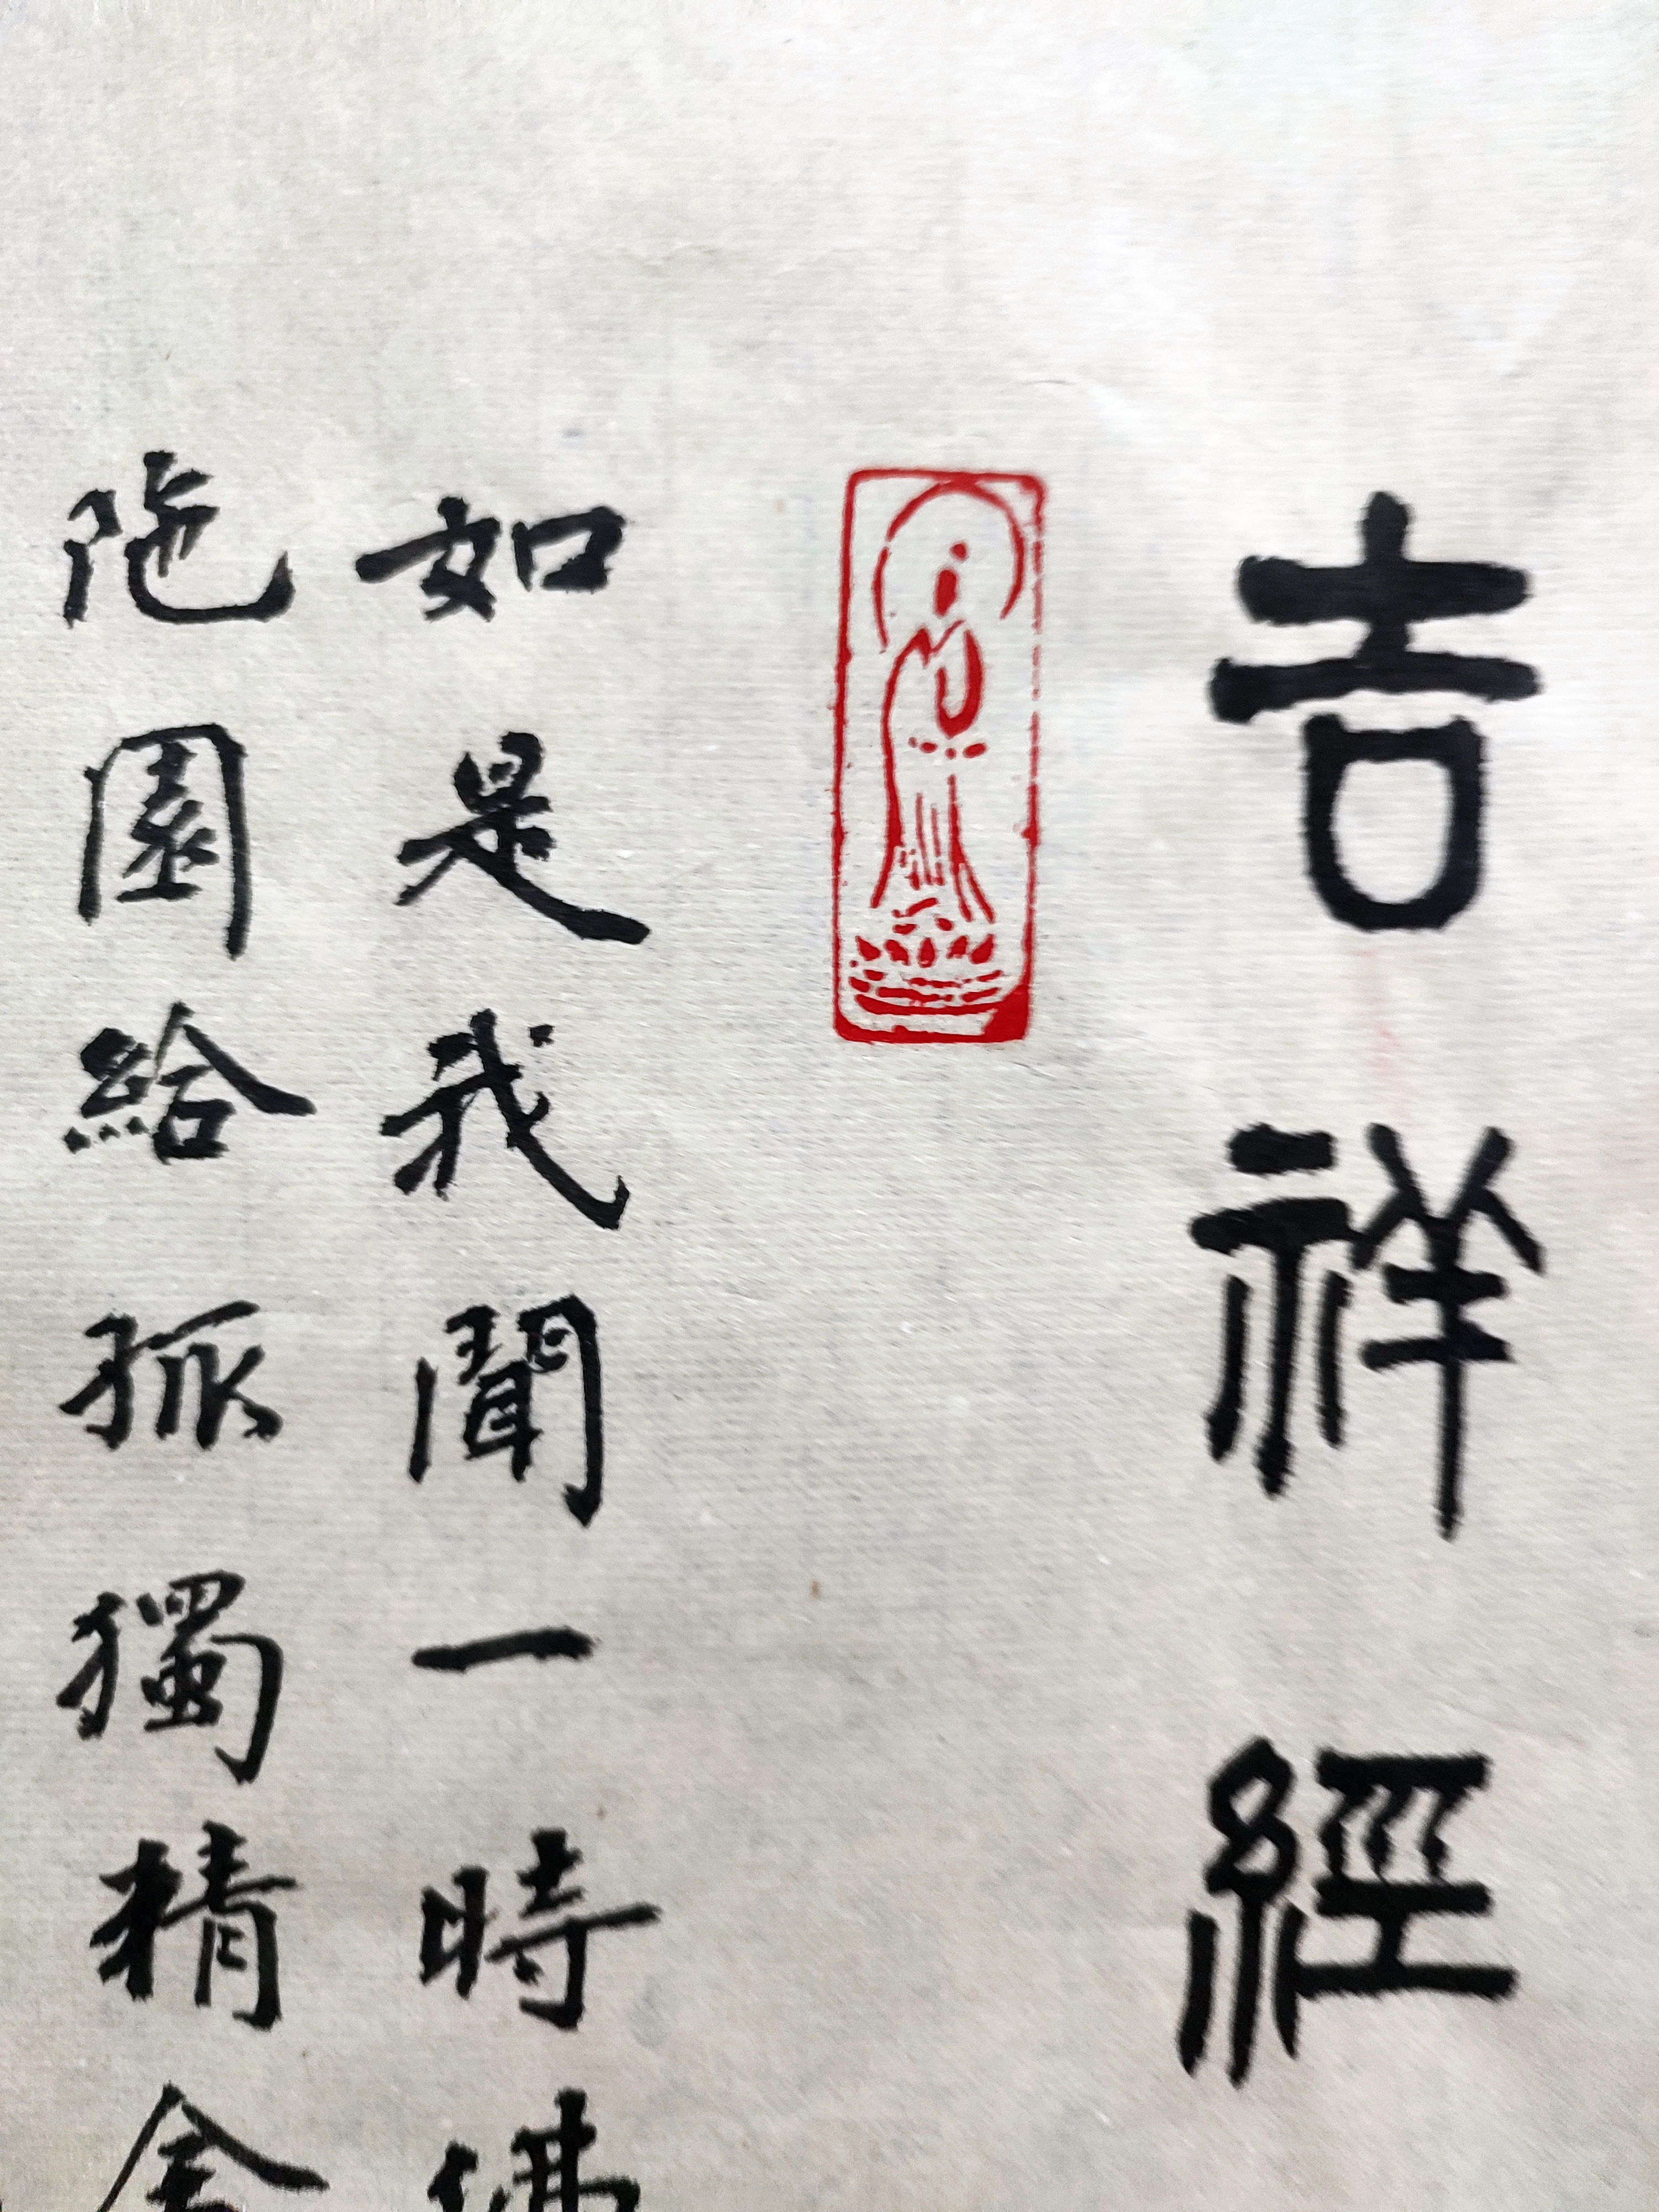 吉祥經
如是我聞一時佛
陁園給孤獨精舍